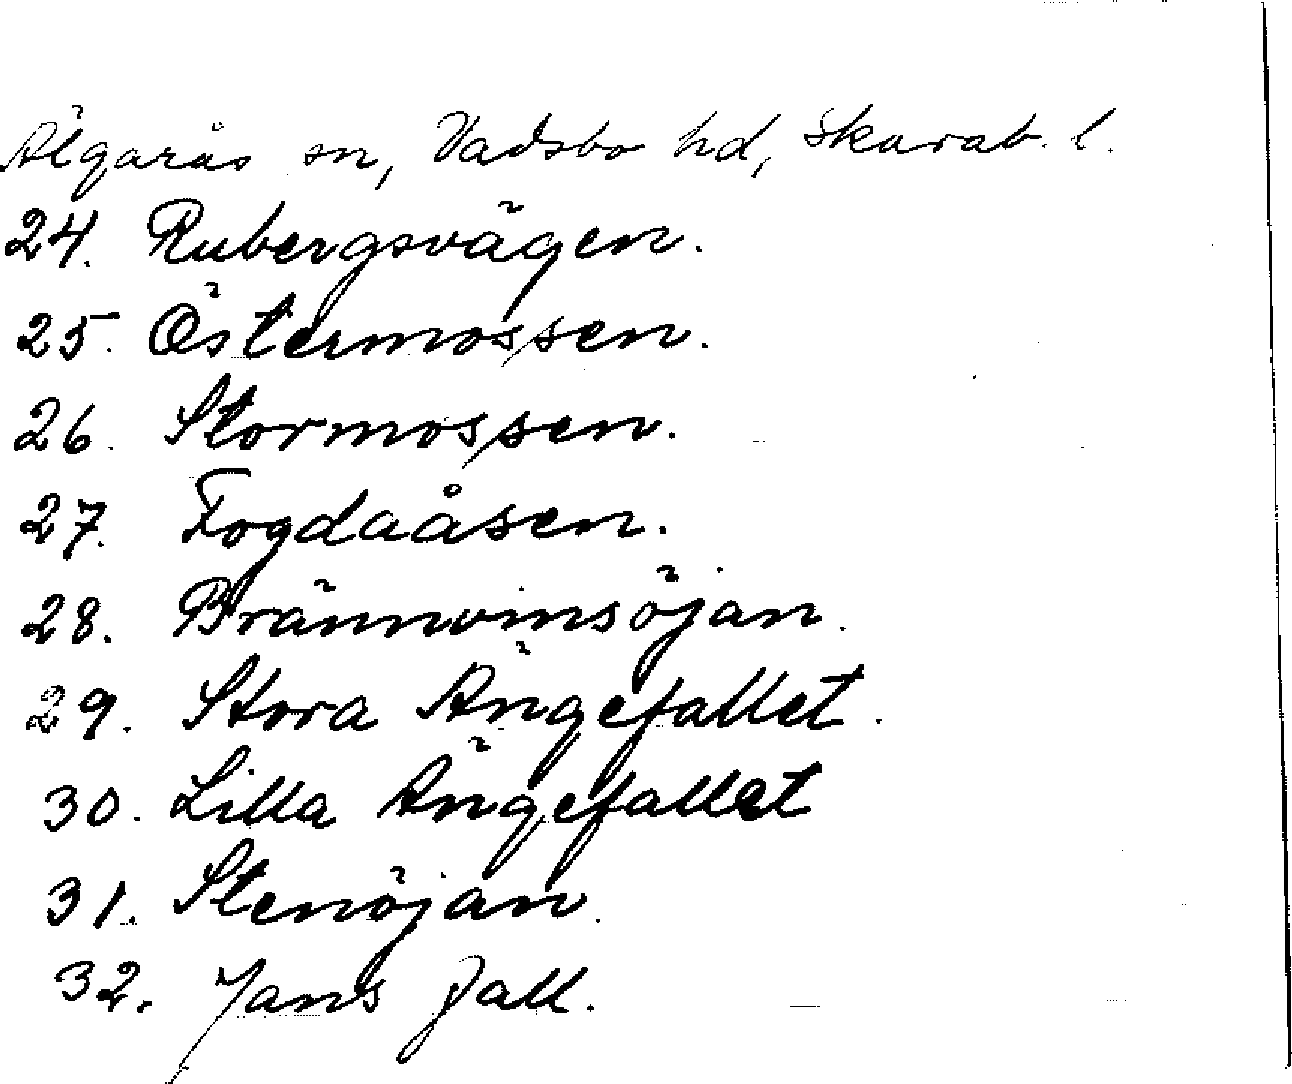 Älgarås sn, Vadsbo hd, Skarab. l.
24. Rubergsvägen.
25. Östermossen.
26. Stormossen.
27. Fogdaåsen.
28. Brännvinsöjan.
29. Stora Ängefallet.
30. Lilla Ängefallet
31. Stenöjan.
32. Jans fall.